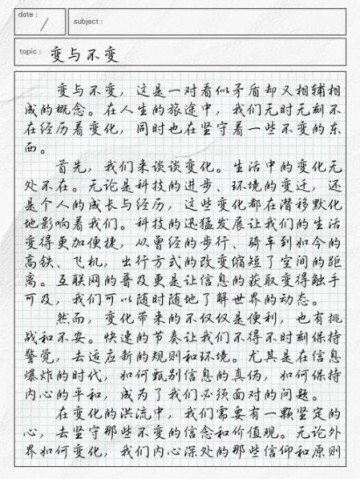 date :
subject :
topic : 变与不变
变与不变，这是一对看似矛盾却又相辅相
成的概念。在人生的旅途中，我们无时无刻不
在经历着变化，同时也在坚守着一些不变的东
西。
首先，我们来谈谈变化。生活中的变化无
处不在。无论是科技的进步、环境的变迁，还
是个人的成长与经历，这些变化都在潜移默化
地影响着我们。科技的迅猛发展让我们的生活
变得更加便捷，从曾经的步行、骑车到如今的
高铁、飞机，出行方式的改变缩短了空间的距
离。互联网的普及更是让信息的获取变得触手
可及，我们可以随时随地了解世界的动态。
然而，变化带来的不仅仅是便利，也有挑
战和不安。快速的节奏让我们不得不时刻保持
警觉，去适应新的规则和环境。尤其是在信息
爆炸的时代，如何甄别信息的真伪，如何保持
内心的平和，成为了我们必须面对的问题。
在变化的洪流中，我们需要有一颗坚定的
心，去坚守那些不变的信念和价值观。无论外
界如何变化，我们内心深处的那些信仰和原则